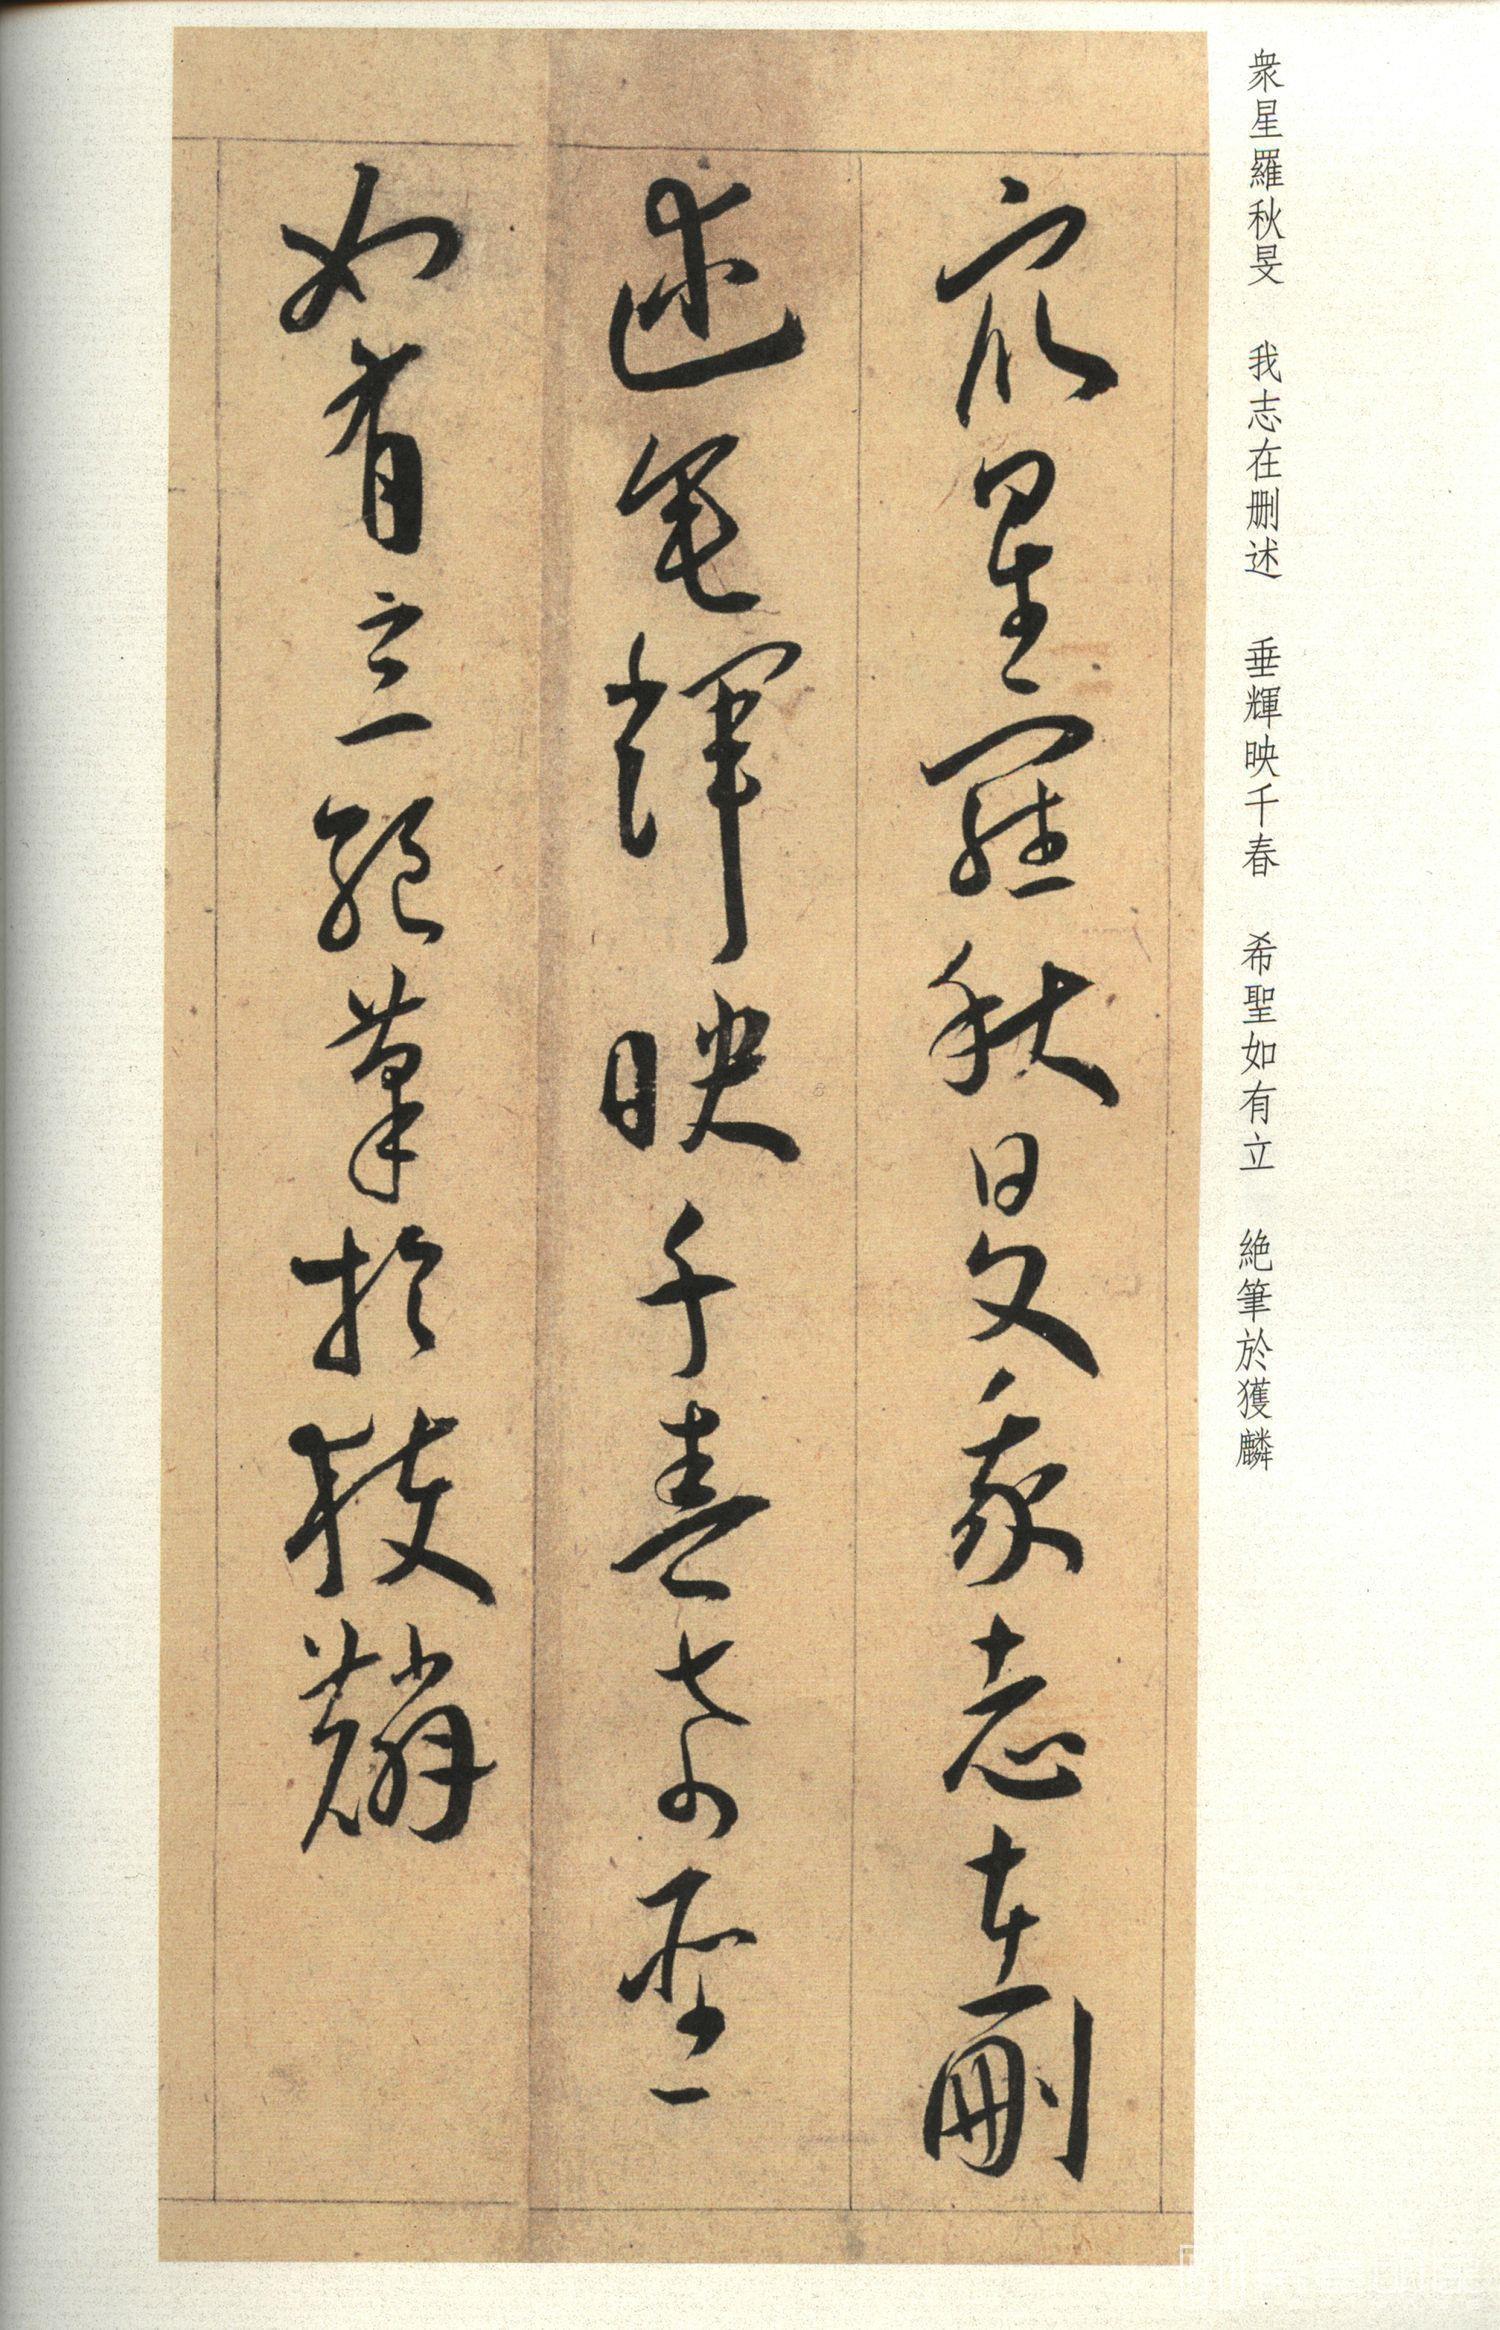 衆星羅秋旻 我志在刪述 垂輝映千春 希聖如有立 絶筆於獲麟
衆星羅秋旻我志在刪
述垂輝映千春希聖
如有立絶筆於獲麟